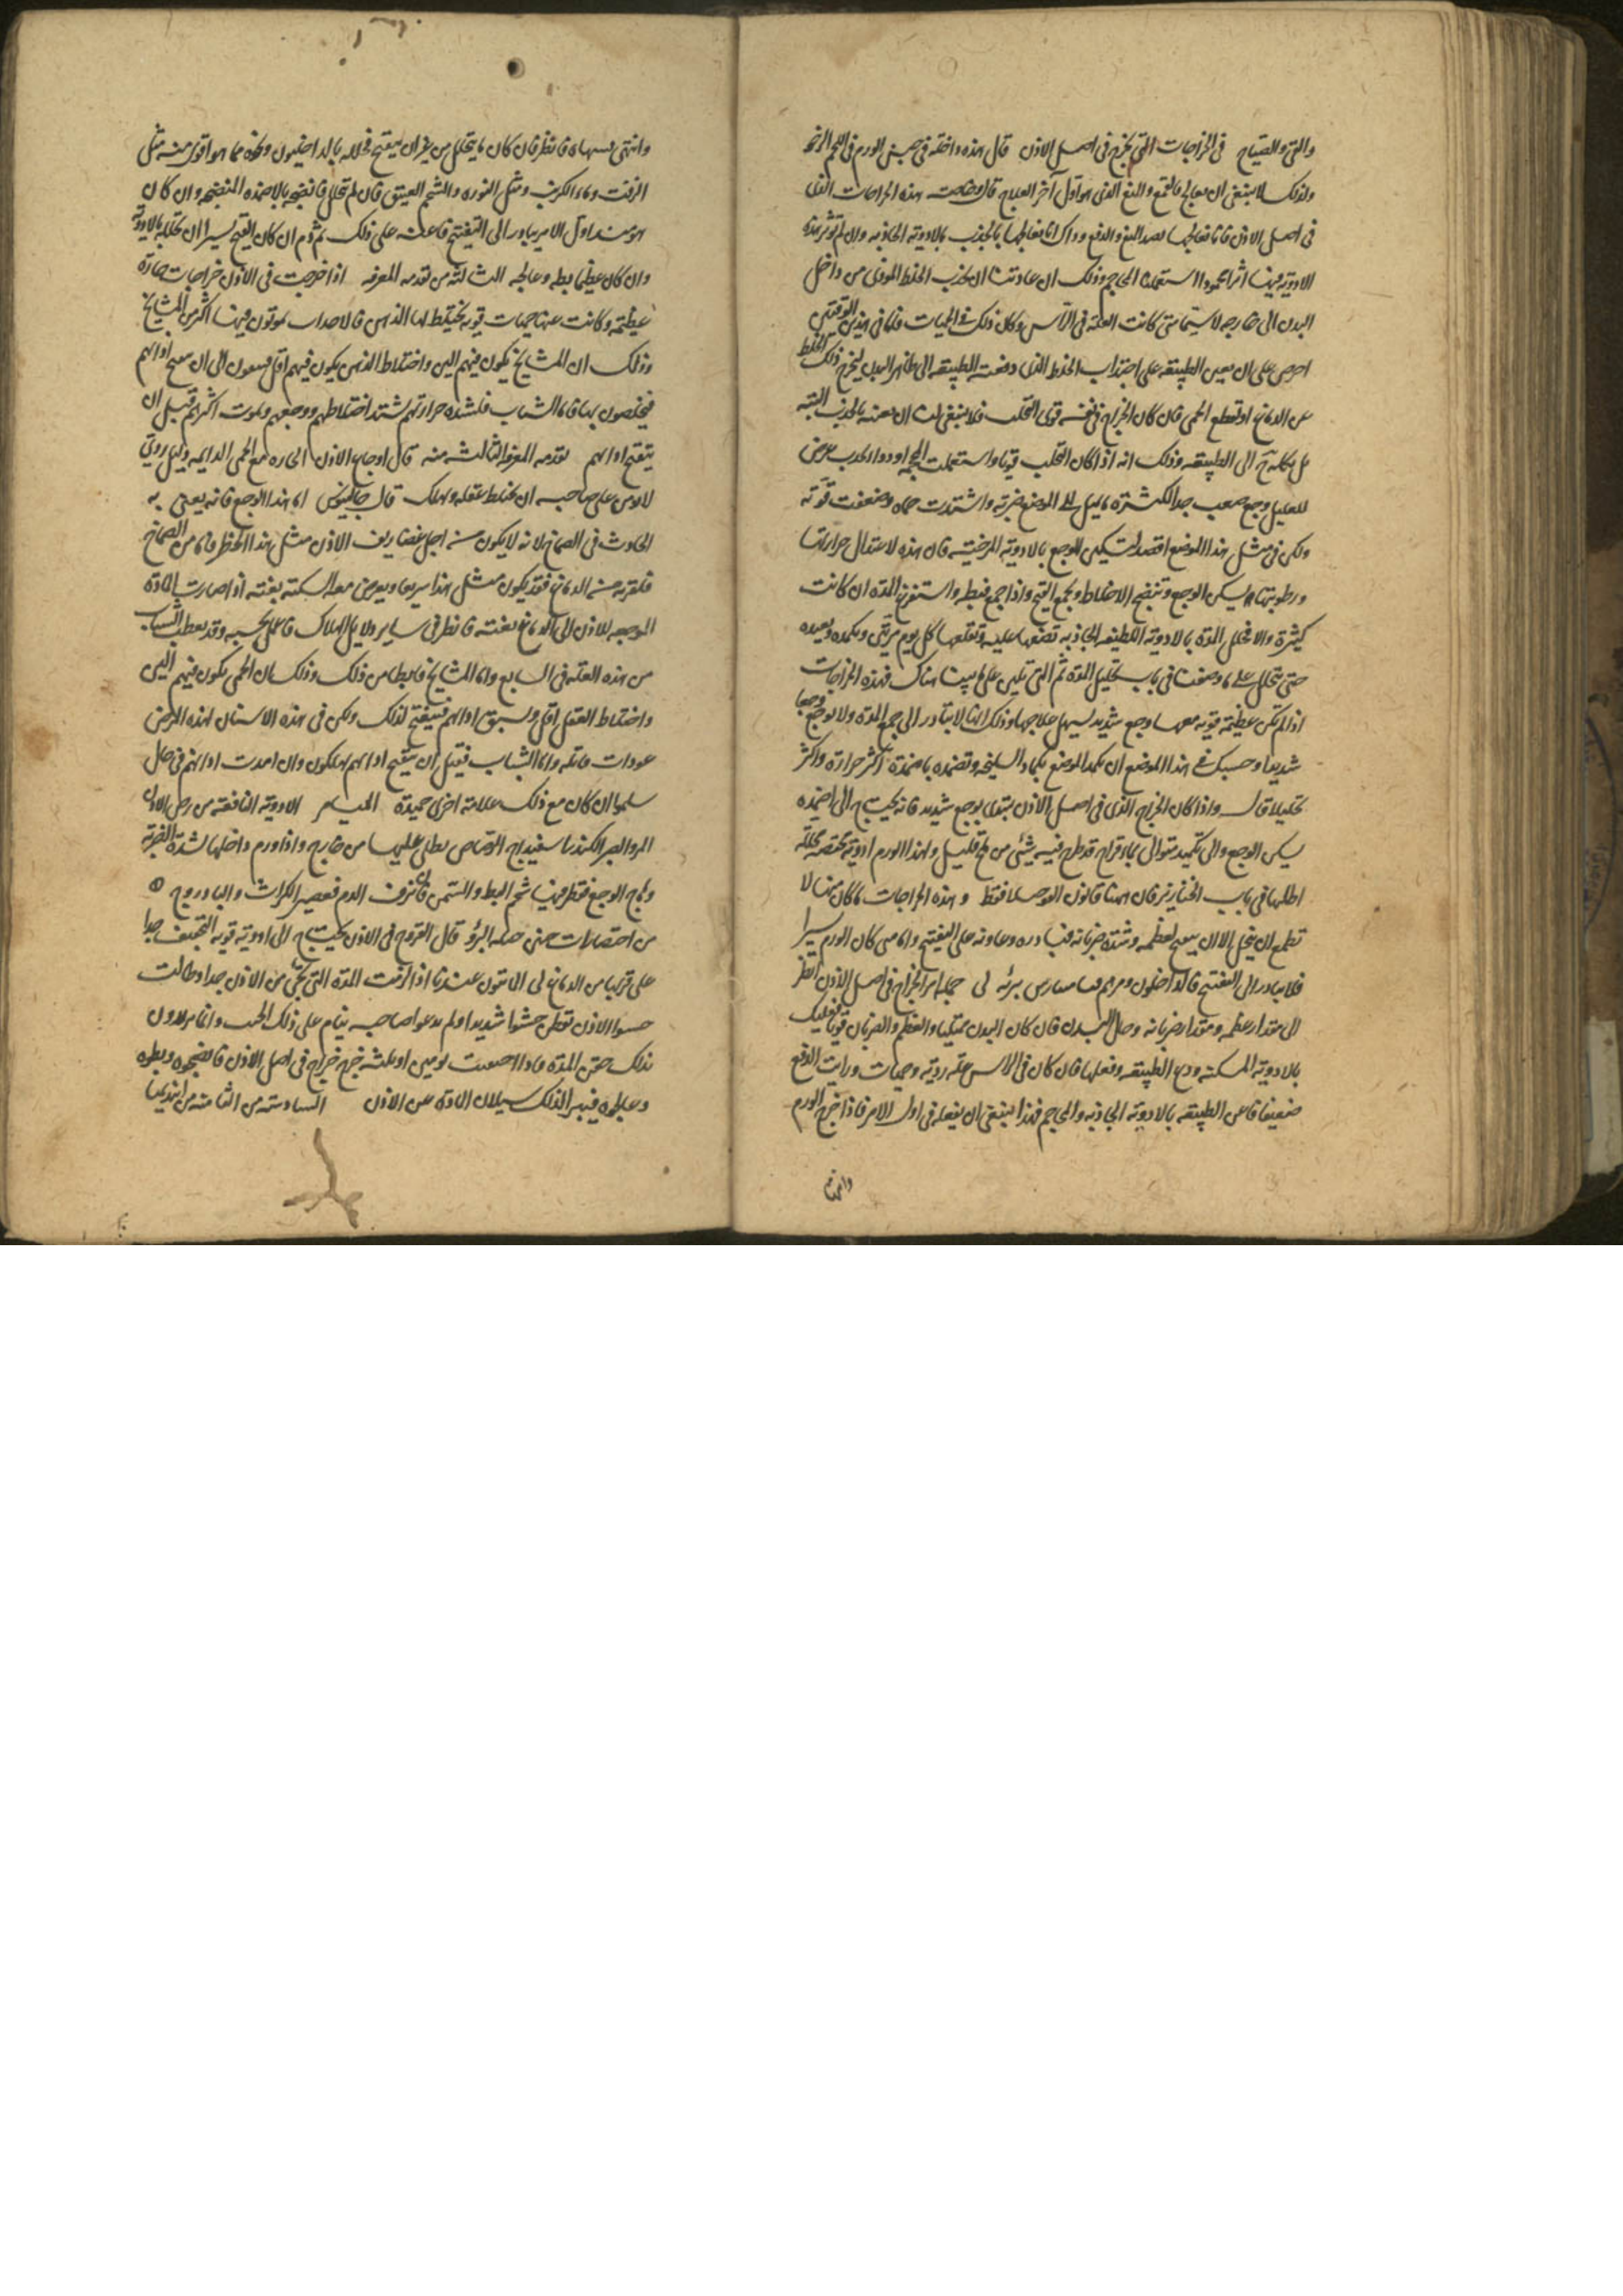 والقئ والصياح في الخراجات التي تخرج في اصل الاذن قال هذه داخلة في جنس الورم في اللحم الرخو
ولذلك لا ينبغي ان يعالج بالقمع والدفع الذي هو اول آخر العلاج قال هذه الخراجات التي
في اصل الاذن فانا نعالجها بضد المنع والدفع وذاك انا نعالجها بالجذب بالادوية الجاذبة وان لم تؤثر هذه
الادوية فيها اثرا محمودا استعملنا المحاجم وذلك ان عادتنا ان نجذب الخلط الموذي من داخل
البدن الى خارجه لا سيما متى كانت العلة في الراس وكان ذلك في الحميات فانا في هذين الوقتين
احرص على ان نعين الطبيعة على اجتذاب الخلط الذي دفعته الطبيعة الى ظاهر البدن ليخرج ذلك الخلط
عن الدماغ او تقطع الحمى فان كان الخراج في نفسه قوي التحلب فلا ينبغي لنا ان نعينه بالجذب البتة
بل نكله الى الطبيعة وذلك انه اذا كان التحلب قويا واستعملت المحجمة او دواء يجذب عرض
للعليل وجع صعب جدا لكثرة ما يميل الى الموضع بضربة واشتدت حماه وضعفت قوته
ولكن في مثل هذا الموضع اقصد لتسكين الوجع بالادوية المرخية فان هذه لاعتدال حرارتها
ورطوبتها تسكن الوجع وتنضج الاخلاط وتجمع القيح واذا جمع فبطه واستفرغ المدة ان كانت
كثيرة والا فحلل المدة بالادوية اللطيفة الجاذبة تضعها عليه وتقلعها كل يوم مرتين وتكمده وتعيده
حتى تتحلل على ما وصفنا في باب تحليل المدة ثم التي تلين على ما بينا هناك فهذه الخراجات
اذا لم تكن عظيمة قوية معها وجع شديد يسهل علاجها وذلك انها لا تبادر الى جمع المدة ولا توجع وجعا
شديدا وحسبك في هذا الموضع ان تكمد الموضع بكماد السليخة وتضمده باضمدة اكثر حرارة واكثر
تحليلا قال واذا كان الخراج الذي في اصل الاذن يبتدي بوجع شديد فانه يحتاج الى اضمدة
تسكن الوجع والى تكميد متوالي بماء قراح قد طرح فيه شئ من ملح قليل ولهذا الورم ادوية مختصة محللة
اطلبها في باب الخنازير فان هاهنا قانون العلاج فقط وهذه الخراجات ما كان منها لا
تطمع ان يتحلل الا ان يتقيح لعظمه وشدة ضربانه فبادره وعاونه على التقيح واما متى كان الورم يسيرا
فلا تبادر الى التقيح فالداخلون ومرهم برئه لي جملة امر الخراج في اصل الاذن انظر
الى مقدار عظمه ومقدار ضربانه وحال البدن فان كان البدن ممتليا والعظم والضربان قويا فعليك
بالادوية المسكنة ودع الطبيعة وفعلها فان كان في الراس علة ردية وحميات ورايت الدفع
ضعيفا فاعن الطبيعة بالادوية الجاذبة والمحاجم فهذا ينبغي ان يفعله في اول الامر فاذا خرج الورم
وانتهى
وانتهى منتهاه فانظر فان كان ما يتحلل من غير ان يتقيح فحلله بالداخليون ونحوه مما هو اقوى منه مثل
الزفت وماء الكرنب ومثل النورة والشحم العتيق فان لم تحلل فانضجه بالاضمدة المنضجة وان كان
هو منذ اول الامر يبادر الى التقيح فاعنه على ذلك ثم دم ان كان القيح يسيرا ان تحلله بالادوية
وان كان عظيما بطه وعالجه الثالثة من تقدمة المعرفة اذا خرجت في الاذن خراجات حارة
عظيمة وكانت عنها حميات قوية يختلط لها الذهن فالاحداث يموتون فيها اكثر من المشايخ
وذلك ان المشايخ يكون فيهم الين واختلاط الذهن يكون فيهم اقل فيبقون الى ان يتقيح اذانهم
فيخلصون بها فاما الشباب فلشدة حرارتهم يشتد اختلاطهم ووجعهم ويموت اكثرهم قبل ان
يتقيح اذانهم تقدمة المعرفة الثالثة منه قال اوجاع الاذن الحارة مع الحمى الدايمة دليل ردي
لا يؤمن على صاحبه ان يختلط عقله ويهلك قال جالينوس اما هذا الوجع فانه يعني به
الحادث في الصماخ لانه لا يكون من اجل غضاريف الاذن مثل هذا الخطر فاما من الصماخ
فلقربه من الدماغ فقد يكون مثل هذا سريعا ويعرض معه السكتة بغتة اذا صارت المادة
الموجعة للاذن الى الدماغ بغتة فانظر في ساير دلايل الهلاك فاعمل بحسبه وقد يعطب الشباب
من هذه العلة في السابع واما المشايخ فابطا من ذلك وذلك ان الحمى تكون فيهم الين
واختلاط العقل اقل ويسبق اذانهم فيتقيح لذلك ولكن في هذه الاسنان لهذه المرض
عودات قاتلة واما الشباب فقبل ان يتقيح اذانهم يهلكون وان امدت اذانهم في حال
سلموا ان كان مع ذلك علامة اخرى حميدة الميامر الادوية النافعة من رض الاذن
المر والصبر الكندر باسفيداج الرصاص يطلى عليها من خارج واذا ورم داخلها لشدة الضربة
وهاج الوجع فقطر فيها شحم البط والسمن فان نزف الدم فعصير الكراث والبادروج
من اختصارات حيلة البرؤ قال القروح في الاذن يحتاج الى ادوية قوية التجفيف جدا
على قربها من الدماغ لي المأمون عندنا اذا ازفت المدة التي تجئ من الاذن جدا وطالت
حشوا الاذن بقطن حشوا شديدا ولم يدعوا صاحبه ينام على ذلك الجنب وانما يريدون
بذلك حقن المدة فاذا احتقنت يومين او ثلثة خرج خراج في اصل الاذن فانضجوه وبطوه
وعالجوه فيبرا لذلك سيلان المادة عن الاذن السادسة من الثامنة من ابيذيميا